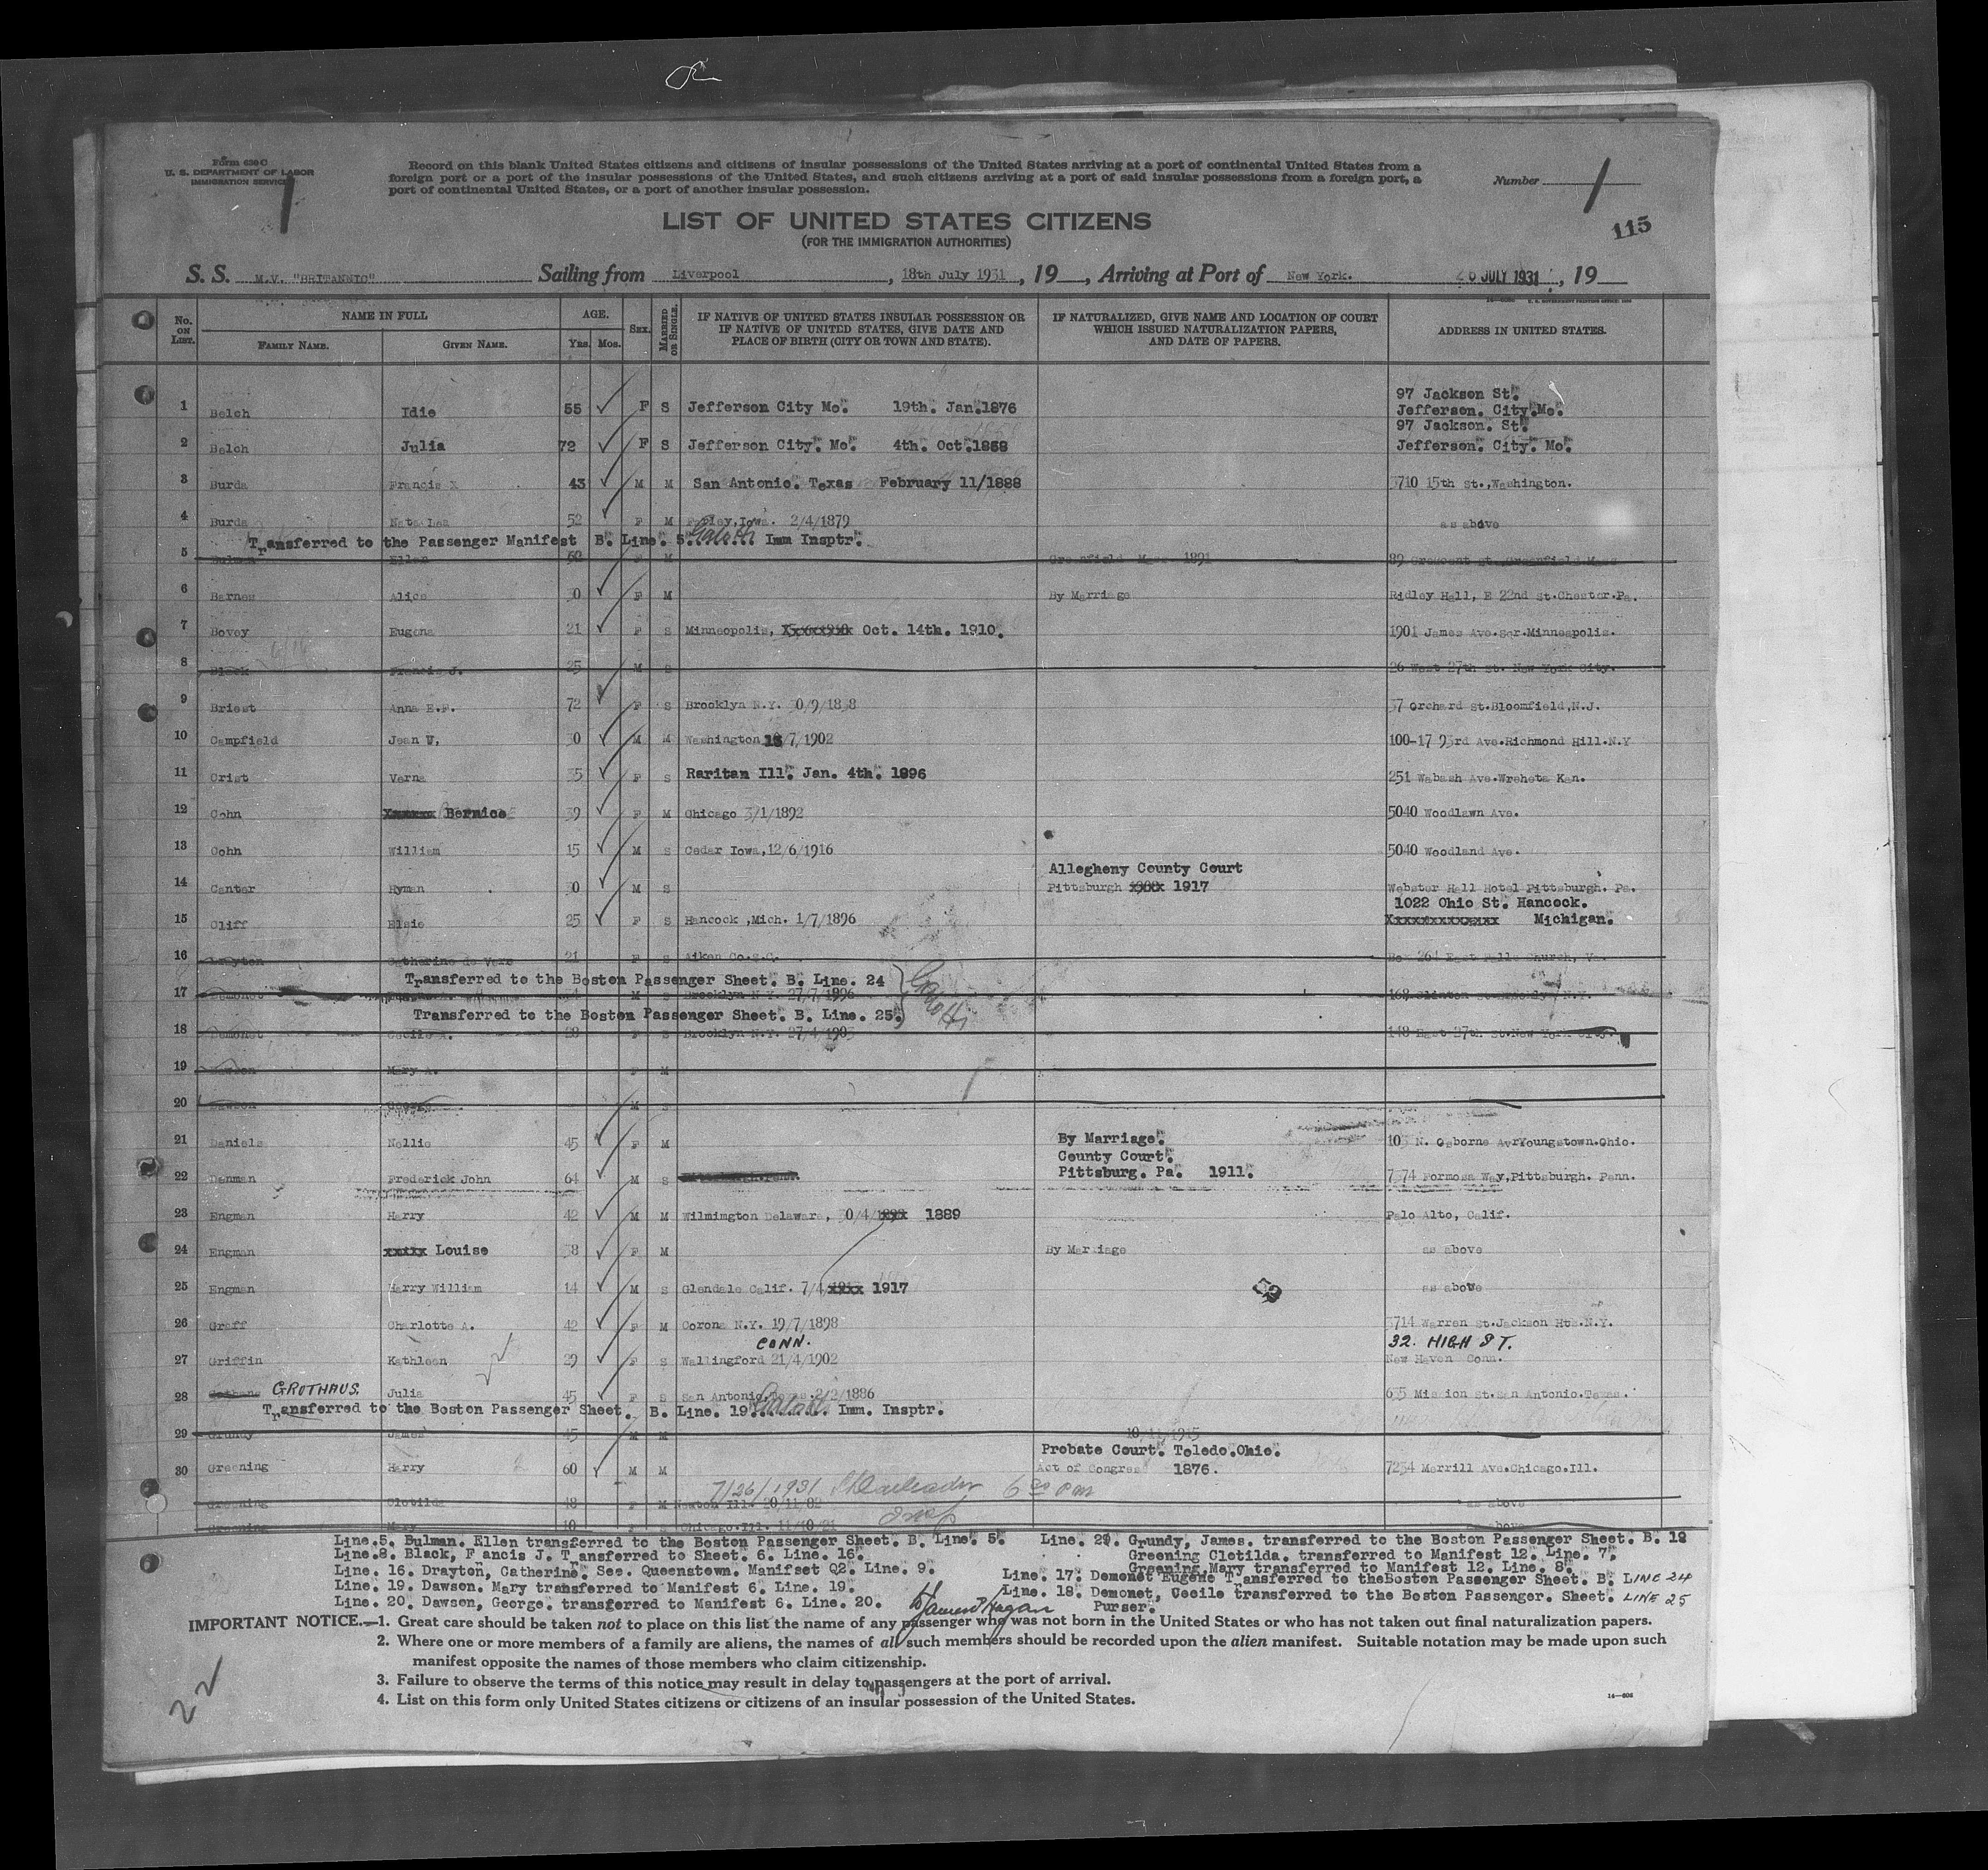 Form 630 C
U. S. DEPARTMENT OF LABOR
IMMIGRATION SERVICE
Record on this blank United States citizens and citizens of insular possessions of the United States arriving at a port of continental United States from a
foreign port or a port of the insular possessions of the United States, and such citizens arriving at a port of said insular possessions from a foreign port, a
port of continental United States, or a port of another insular possession.
Number 1
115
LIST OF UNITED STATES CITIZENS
(FOR THE IMMIGRATION AUTHORITIES)
S. S. M.V. "BRITANNIC" Sailing from Liverpool, 18th July 1931, 19 , Arriving at Port of New York. 26 JULY 1931, 19
No. ON LIST. NAME IN FULL AGE. SEX. MARRIED OR SINGLE. IF NATIVE OF UNITED STATES INSULAR POSSESSION OR IF NATIVE OF UNITED STATES, GIVE DATE AND PLACE OF BIRTH (CITY OR TOWN AND STATE). IF NATURALIZED, GIVE NAME AND LOCATION OF COURT WHICH ISSUED NATURALIZATION PAPERS, AND DATE OF PAPERS. ADDRESS IN UNITED STATES.
FAMILY NAME. GIVEN NAME. YRS. MOS.
1 Belch Idie 55 F S Jefferson City Mo. 19th. Jan.1876 97 Jackson St. Jefferson. City.Mo.
2 Belch Julia 72 F S Jefferson City. Mo. 4th. Oct.1858 97 Jackson. St. Jefferson. City. Mo.
3 Burda Francis X 43 M M San Antonio. Texas February 11/1888 3710 15th St.,Washington.
4 Burda 52 F M Iowa. 2/4/1879 as above
Transferred to the Passenger Manifest B. Line. 5. Galotti Imm Insptr.
5 Bulman Ellen 60 F M Greenfield Mass 1891 89 Crescent St. Greenfield Mass
6 Barnes Alice 30 F M By Marriage Ridley Hall, E 22nd St.Chester.Pa.
7 Bovey Eugena 21 F S Minneapolis, Oct. 14th. 1910. 1901 James Ave.Sor.Minneapolis.
8 Black Francis J. 25 M S 26 West 27th St. New York City.
9 Briest Anna E.F. 72 F S Brooklyn N.Y. 30/9/1858 37 Orchard St.Bloomfield,N.J.
10 Campfield Jean W. 30 M M Washington 18/7/1902 100-17 93rd Ave.Richmond Hill.N.Y
11 Crist Verna 35 F S Raritan Ill. Jan. 4th. 1896 251 Wabash Ave.Wreheta Kan.
12 Cohn Bernice 39 F M Chicago 3/1/1892 5040 Woodlawn Ave.
13 Cohn William 15 M S Cedar Iowa,12/6/1916 5040 Woodland Ave.
14 Canter Hyman 30 M S Allegheny County Court Pittsburgh 1917 Webster Hall Hotel Pittsburgh. Pa.
15 Cliff Elsie 25 F S Hancock ,Mich. 1/7/1896 1022 Ohio St. Hancock. Michigan.
16 Drayton Catherine de Vere 21 F S Aiken Co.S.C. Box 264 East Falls Church, Va.
Transferred to the Boston Passenger Sheet. B. Line. 24 Galotti
17 Demonet M S Brooklyn N.Y. 27/7/1896 168 Clinton St. N.Y.
Transferred to the Boston Passenger Sheet. B. Line. 25.
18 Demonet Cecile A. 28 F S Brooklyn N.Y. 27/4/1903 148 East 27th St.New York City.
19 Dawson Mary A. F M
20 Dawson George M S
21 Daniels Nellie 45 F M By Marriage. 103 N. Osborne AvrYoungstown.Ohio.
22 Denman Frederick John 64 M S County Court. Pittsburg. Pa. 1911. 7374 Formosa Way,Pittsburgh. Penn.
23 Engman Harry 42 M M Wilmington Delaware, 30/4/ 1889 Palo Alto, Calif.
24 Engman Louise 38 F M By Marriage as above
25 Engman Harry William 14 M S Glendale Calif. 7/4/ 1917 as above
26 Graff Charlotte A. 42 F M Corona N.Y. 19/7/1898 3714 Warren St.Jackson Hts.N.Y.
27 Griffin Kathleen 29 F S Wallingford CONN. 21/4/1902 32. HIGH ST. New Haven Conn.
28 GROTHAUS. Julia 45 F S San Antonio.Texas.2/2/1886 635 Mission St.San Antonio.Texas.
Transferred to the Boston Passenger Sheet. B. Line. 19. Galotti Imm. Insptr.
29 Grundy James 45 M M 10/11/1915
30 Greening Harry 60 M M Probate Court. Toledo.Ohio. Act of Congress 1876. 7234 Merrill Ave.Chicago.Ill.
7/26/1931
Greening Clotilda 48 F M Newton Ill. 20/11/82 as above
Greening Mary 10 F S Chicago.Ill. 11/10/21 as above
Line.5. Bulman. Ellen transferred to the Boston Passenger Sheet. B. Line. 5.
Line.8. Black, Francis J. Transferred to Sheet. 6. Line. 16.
Line. 16. Drayton, Catherine. See. Queenstown. Manifset Q2. Line. 9.
Line. 19. Dawson. Mary transferred to Manifest 6. Line. 19.
Line. 20. Dawson, George. transferred to Manifest 6. Line. 20.
Line. 29. Grundy, James. transferred to the Boston Passenger Sheet. B. 19
Greening Clotilda. transferred to Manifest 12. Line. 7.
Greening,Mary transferred to Manifest 12. Line. 8.
Line. 17. Demonet Eugene Transferred to theBoston Passenger Sheet. B. LINE 24
Line. 18. Demonet, Cecile transferred to the Boston Passenger. Sheet. LINE 25
Purser.
IMPORTANT NOTICE.—1. Great care should be taken not to place on this list the name of any passenger who was not born in the United States or who has not taken out final naturalization papers.
2. Where one or more members of a family are aliens, the names of all such members should be recorded upon the alien manifest. Suitable notation may be made upon such
manifest opposite the names of those members who claim citizenship.
3. Failure to observe the terms of this notice may result in delay to passengers at the port of arrival.
4. List on this form only United States citizens or citizens of an insular possession of the United States.
22